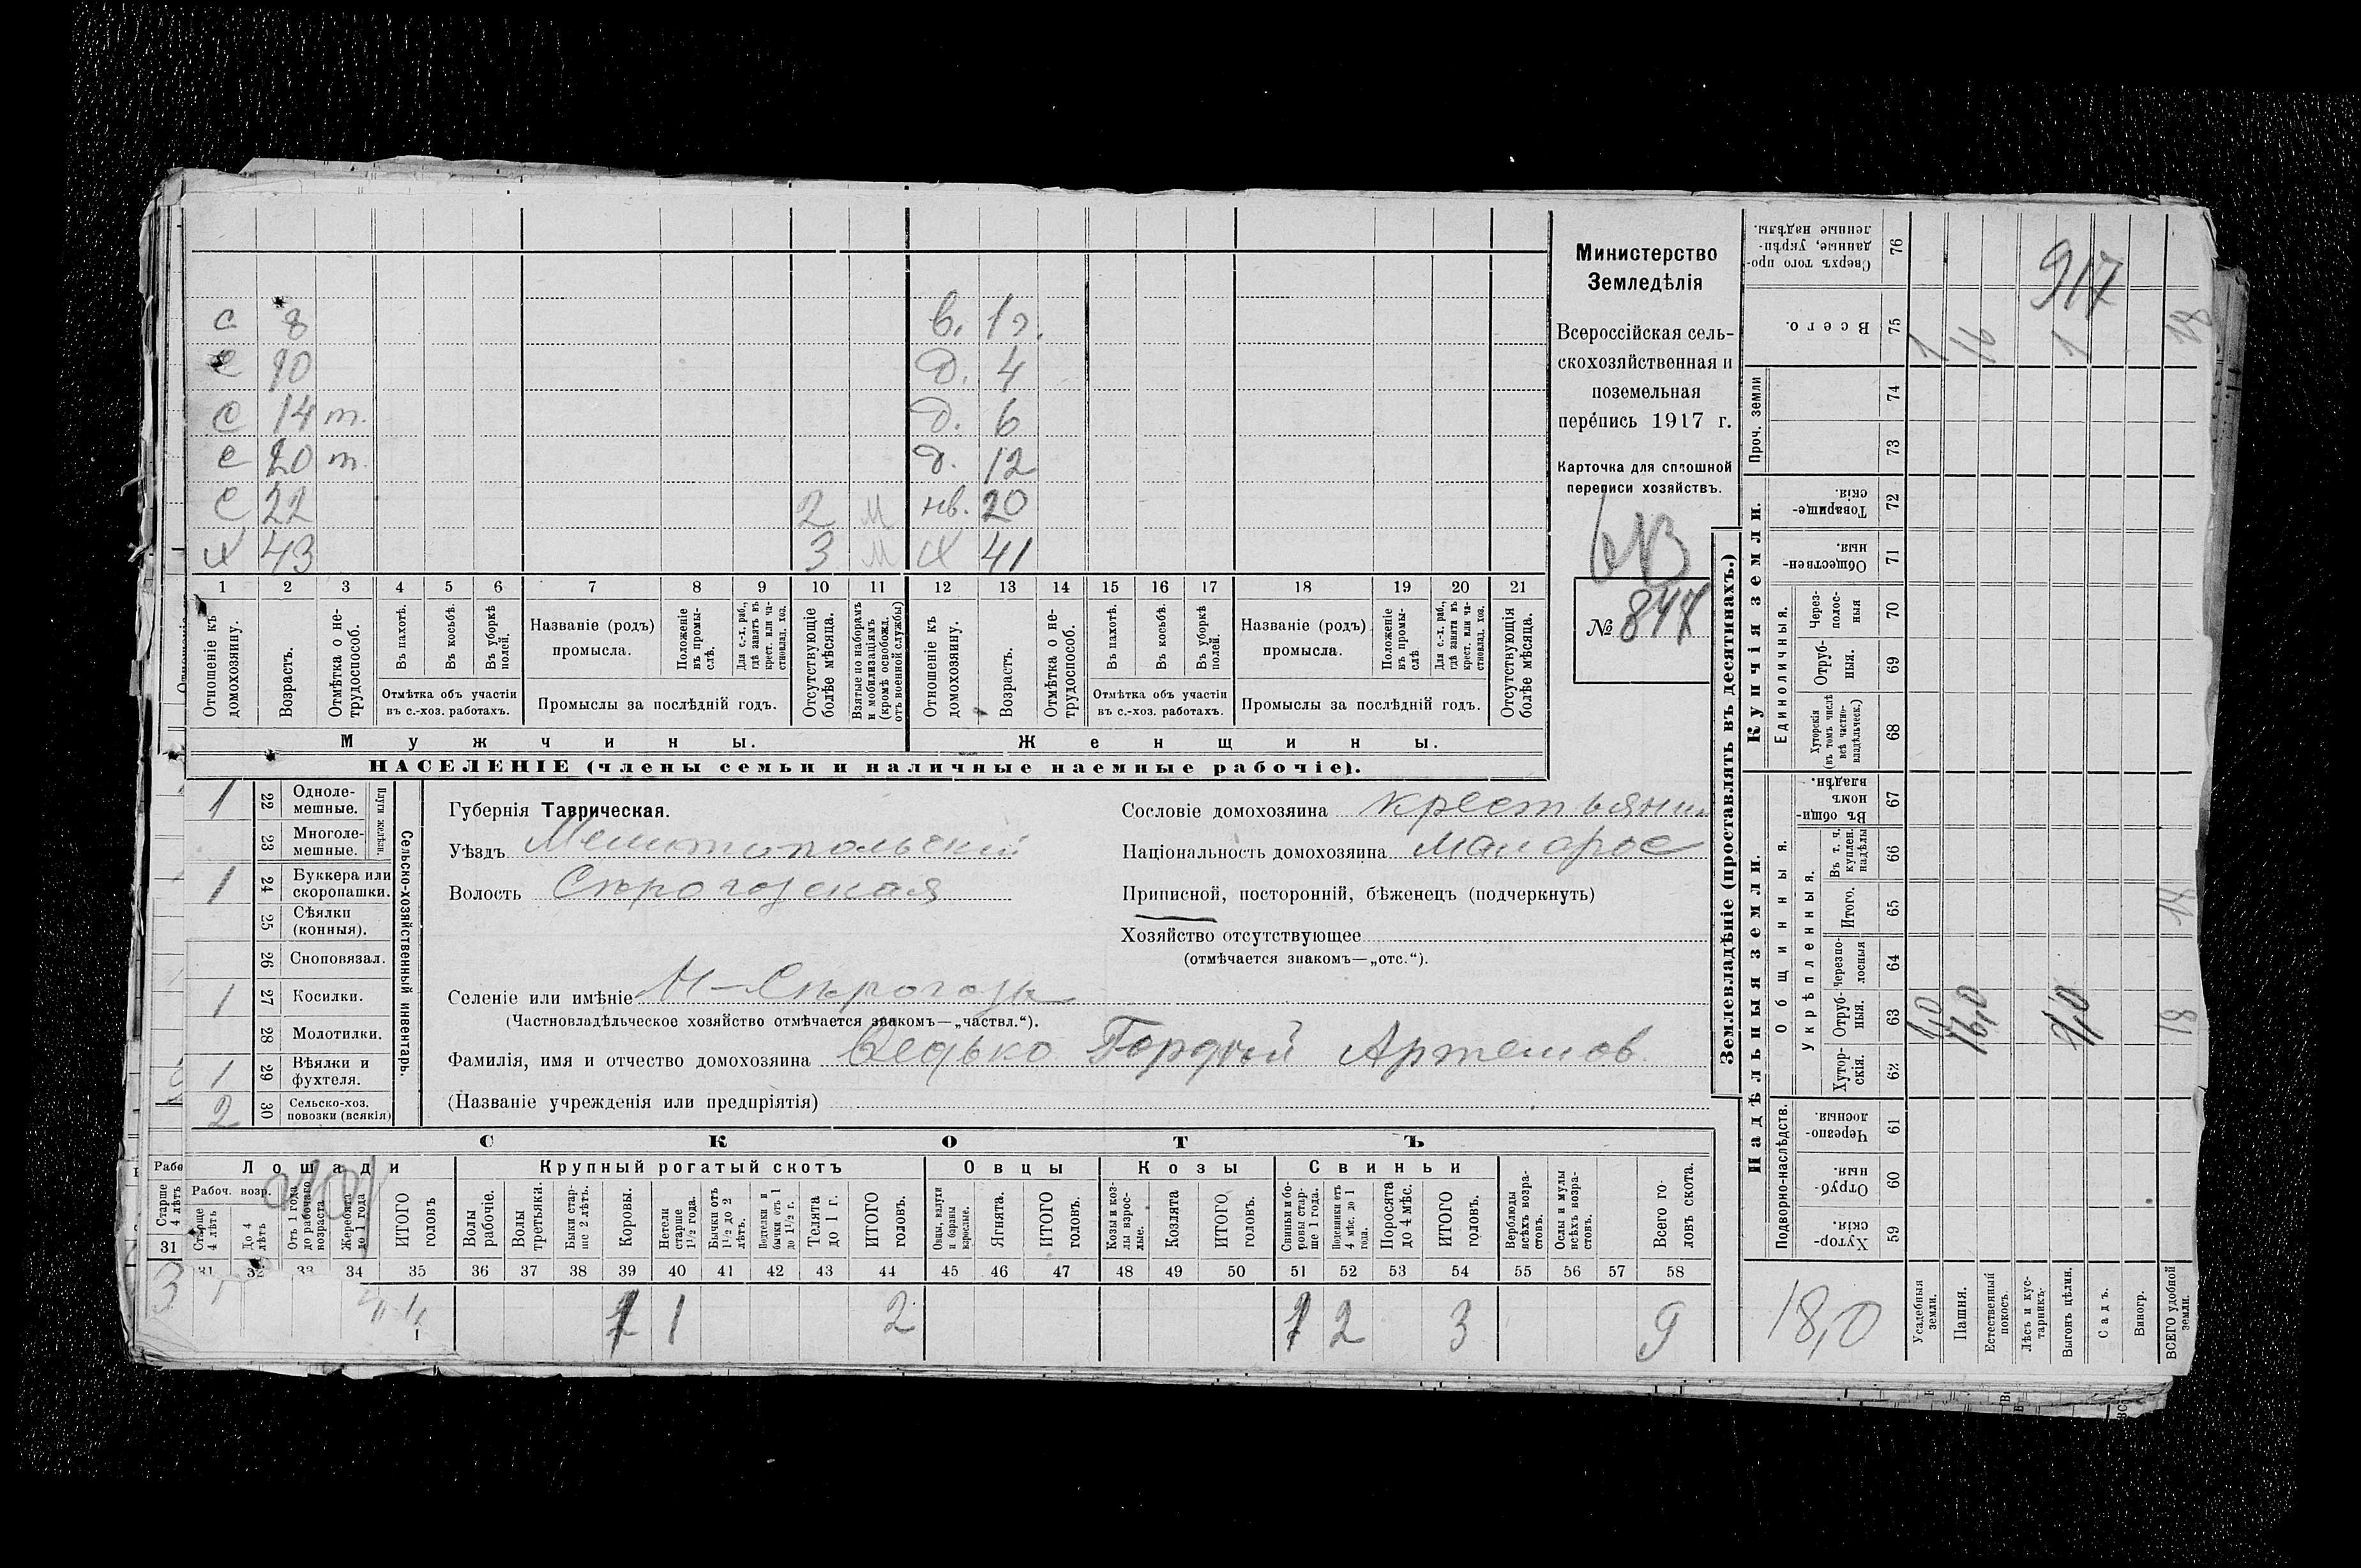 с 8 в. 1 г.
с 10 д. 4
с 14 т. д. 6
с 20 т. д. 12
с 22 2 м нв. 20
х 43 3 м х 41
1 2 3 4 5 6 7 8 9 10 11 12 13 14 15 16 17 18 19 20 21
Отношеніе къ домохозяину.
Возрастъ.
Отмѣтка о нетрудоспособ.
Въ пахотѣ.
Въ косьбѣ.
Въ уборкѣ полей.
Отмѣтка объ участіи
въ с.-хоз. работахъ.
Названіе (родъ)
промысла.
Положеніе въ промыслѣ,
Для с.-х. раб., гдѣ занятъ въ крест. или частновлад. хоз.
Промыслы за послѣдній годъ.
Отсутствующіе болѣе мѣсяца.
Взятые по наборамъ и мобилизаціямъ (кромѣ освобожд. отъ военной службы)
Отношеніе къ домохозяину.
Возрастъ.
Отмѣтка о нетрудоспособ.
Въ пахотѣ.
Въ косьбѣ.
Въ уборкѣ полей.
Отмѣтка объ участіи
въ с.-хоз. работахъ.
Названіе (родъ)
промысла.
Положеніе въ промыслѣ
Для с.-х. раб., гдѣ занята въ крест. или частновлад. хоз.
Промыслы за послѣдній годъ.
Отсутствующія болѣе мѣсяца.
Мужчины. Женщины.
НАСЕЛЕНІЕ (члены семьи и наличные наемные рабочіе).
Министерство
Земледѣлія
Всероссійская сель-
скохозяйственная и
поземельная
перепись 1917 г.
Карточка для сплошной
переписи хозяйствъ.
№ 844
Сельско-хозяйственный инвентарь.
Плуги желѣзн.
1 22 Однолемешные.
23 Многолемешные.
1 24 Буккера или скоропашки.
25 Сѣялки (конныя).
26 Сноповязал.
1 27 Косилки.
28 Молотилки.
1 29 Вѣялки и фухтеля.
2 30 Сельско-хоз. повозки (всякія)
Губернія Таврическая.
Уѣздъ Мелитопольский
Волость Сѣрогозская
Сословіе домохозяина крестьянин
Національность домохозяина малорос
Приписной, посторонній, бѣженецъ (подчеркнуть)
Хозяйство отсутствующее
(отмѣчается знакомъ—„отс.“).
Селеніе или имѣніе Н-Сѣрогозы
(Частновладѣльческое хозяйство отмѣчается знакомъ—„частвл.“).
Фамилія, имя и отчество домохозяина Гордѣй Артемов
(Названіе учрежденія или предпріятія)
СКОТЪ
Лошади Крупный рогатый скотъ Овцы Козы Свиньи
Рабоч. возр.
Старше 4 лѣтъ
До 4 лѣтъ
Отъ 1 года до рабочаго возраста
Жеребята до 1 года
ИТОГО головъ
Волы рабочіе.
Волы третьяки.
Быки старше 2 лѣтъ.
Коровы.
Нетели старше 1½ года.
Бычки отъ 1½ до 2 лѣтъ.
Подтелки и бычки отъ 1 до 1½ г.
Телята до 1 г.
ИТОГО головъ.
Овцы, валухи и бараны взрослые.
Ягнята.
ИТОГО головъ.
Козы и козлы взрослые.
Козлята
ИТОГО головъ.
Свиньи и боровы старше 1 года.
Подсвинки отъ 4 мѣс. до 1 года.
Поросята до 4 мѣс.
ИТОГО головъ.
Верблюды всѣхъ возрастовъ.
Ослы и мулы всѣхъ возрастовъ.
Всего головъ скота.
Рабо
Старше 4 лѣтъ
31
31 32 33 34 35 36 37 38 39 40 41 42 43 44 45 46 47 48 49 50 51 52 53 54 55 56 57 58
3 1 4 1 2 2 3 9
Землевладѣніе (проставлять въ десятинахъ.)
Купчія земли.
Надѣльныя земли.
Сверхъ того проданные, укрѣпленные надѣлы. 76
Всего. 75
Проч. земли 74
73
Товарищескія. 72
Общественныя. 71
Единоличныя.
Черезполосныя 70
Отрубныя. 69
Хуторскія (въ томъ числѣ всѣ частновладѣльческ.) 68
Общинныя.
Въ общинномъ владѣн. 67
Укрѣпленныя.
Въ т. ч. куплен. надѣлы 66
Итого. 65
Черезполосныя 64
Отрубныя. 63
Хуторскія. 62
Подворно-наслѣдств.
Черезполосныя. 61
Отрубныя. 60
Хуторскія. 59
917
1 16 1 18
18
1,0 16,0 1,0 18
18,0
Усадебныя земли.
Пашня.
Естественный покосъ.
Лѣсъ и кустарникъ.
Выгонъ цѣлин.
Садъ.
Виногр.
ВСЕГО удобной земли.